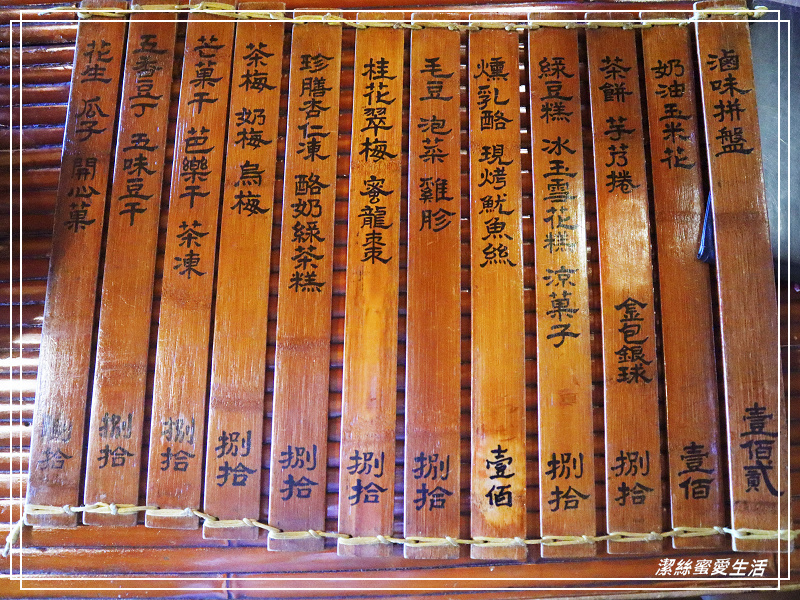 滷味拼盤 壹佰貳
奶油玉米花 壹佰
茶餅 芋艿捲 金包銀球 捌拾
綠豆糕 冰玉雪花糕 涼菓子 捌拾
燻乳酪 現烤魷魚絲 壹佰
毛豆 泡菜 雞胗 捌拾
桂花翠梅 蜜龍棗 捌拾
珍膳杏仁凍 酪奶綠茶糕 捌拾
茶梅 奶梅 烏梅 捌拾
芒菓干 芭樂干 茶凍 捌拾
五香豆丁 五味豆干 捌拾
花生 瓜子 開心菓 捌拾
潔絲蜜愛生活